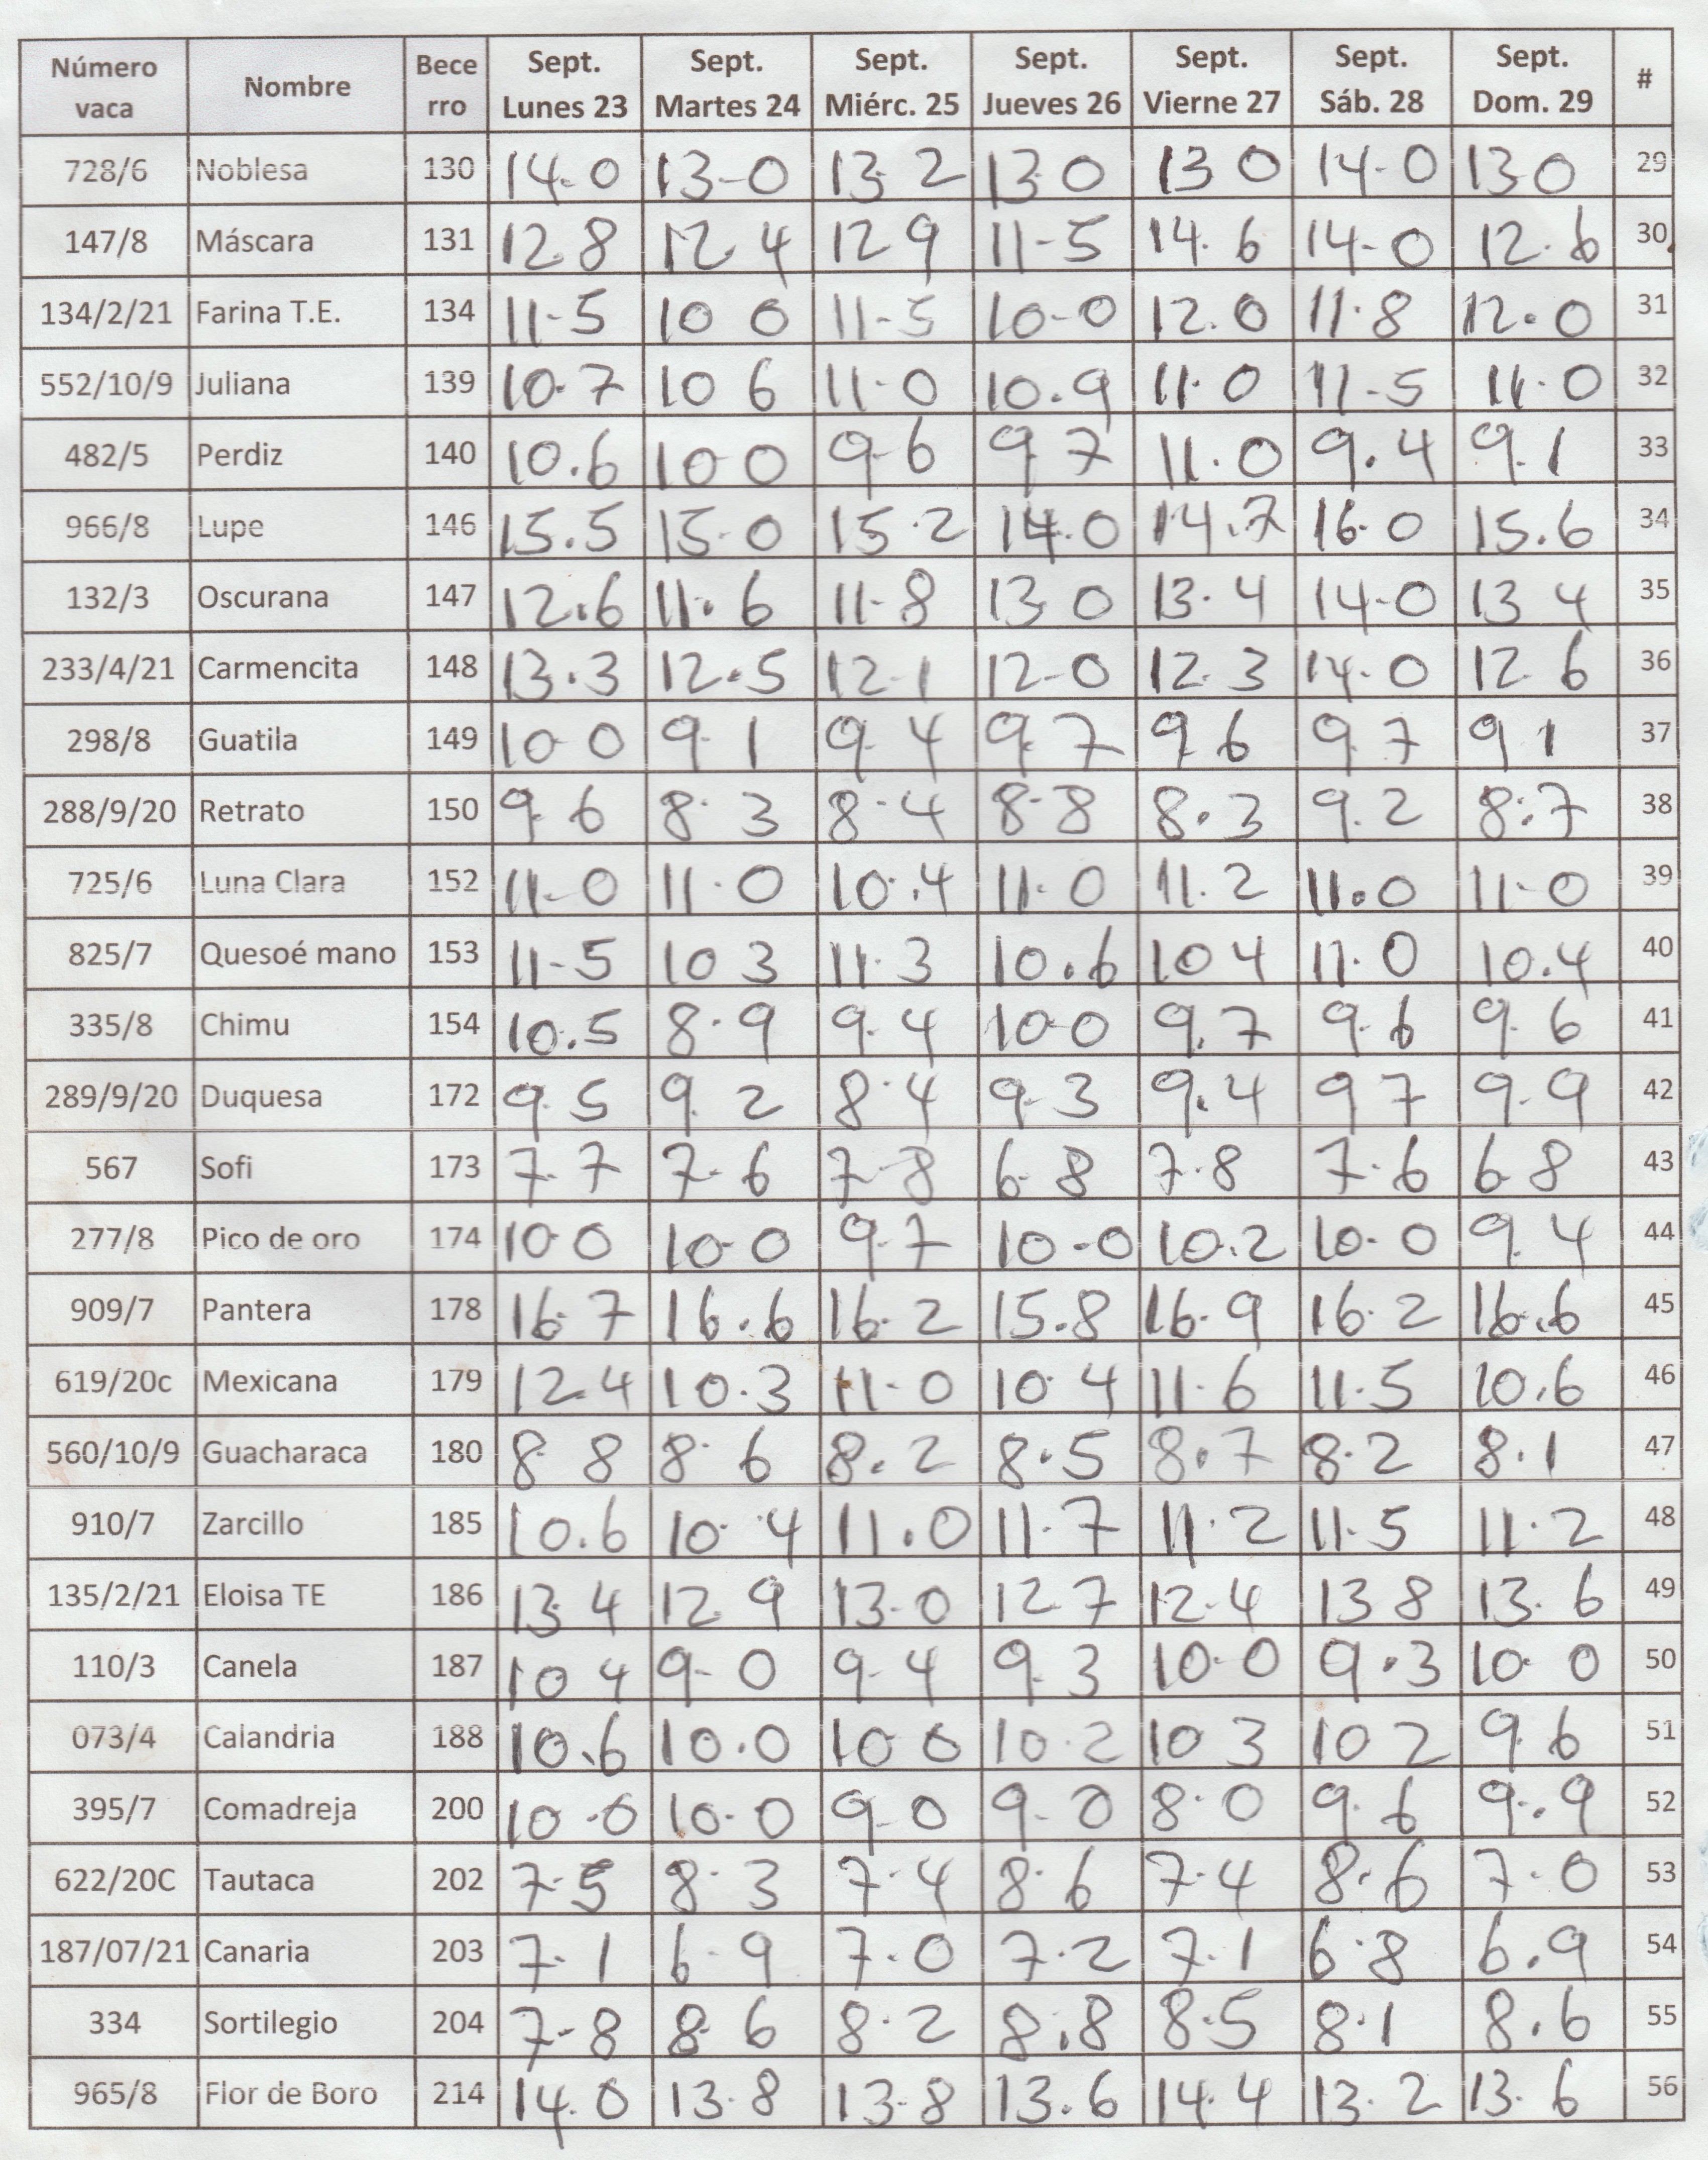 Número vaca | Nombre | Bece rro | Sept. Lunes 23 | Sept. Martes 24 | Sept. Miérc. 25 | Sept. Jueves 26 | Sept. Vierne 27 | Sept. Sáb. 28 | Sept. Dom. 29 | #
728/6 | Noblesa | 130 | 14.0 | 13-0 | 13.2 | 13 0 | 13 0 | 14-0 | 13 0 | 29
147/8 | Máscara | 131 | 12.8 | 12.4 | 12 9 | 11-5 | 14.6 | 14-0 | 12.6 | 30
134/2/21 | Farina T.E. | 134 | 11-5 | 10 0 | 11-5 | 10-0 | 12.0 | 11.8 | 12.0 | 31
552/10/9 | Juliana | 139 | 10.7 | 10 6 | 11.0 | 10.9 | 11.0 | 11-5 | 11.0 | 32
482/5 | Perdiz | 140 | 10.6 | 10 0 | 9-6 | 9 7 | 11.0 | 9.4 | 9.1 | 33
966/8 | Lupe | 146 | 15.5 | 15.0 | 15.2 | 14.0 | 14.7 | 16.0 | 15.6 | 34
132/3 | Oscurana | 147 | 12.6 | 11.6 | 11-8 | 13 0 | 13.4 | 14-0 | 13 4 | 35
233/4/21 | Carmencita | 148 | 13.3 | 12.5 | 12-1 | 12-0 | 12.3 | 14.0 | 12.6 | 36
298/8 | Guatila | 149 | 10 0 | 9.1 | 9.4 | 9.7 | 9 6 | 9.7 | 9 1 | 37
288/9/20 | Retrato | 150 | 9 6 | 8.3 | 8.4 | 8-8 | 8.3 | 9.2 | 8.7 | 38
725/6 | Luna Clara | 152 | 11-0 | 11.0 | 10.4 | 11.0 | 11.2 | 11.0 | 11-0 | 39
825/7 | Quesoé mano | 153 | 11-5 | 10 3 | 11.3 | 10.6 | 10 4 | 11.0 | 10.4 | 40
335/8 | Chimu | 154 | 10.5 | 8.9 | 9.4 | 10-0 | 9.7 | 9.6 | 9.6 | 41
289/9/20 | Duquesa | 172 | 9.5 | 9.2 | 8.4 | 9-3 | 9.4 | 9 7 | 9.9 | 42
567 | Sofi | 173 | 7.7 | 7.6 | 7-8 | 6.8 | 7.8 | 7.6 | 6 8 | 43
277/8 | Pico de oro | 174 | 10 0 | 10-0 | 9.7 | 10.0 | 10.2 | 10.0 | 9.4 | 44
909/7 | Pantera | 178 | 16.7 | 16.6 | 16.2 | 15.8 | 16.9 | 16.2 | 16.6 | 45
619/20c | Mexicana | 179 | 12.4 | 10.3 | 11-0 | 10.4 | 11.6 | 11.5 | 10.6 | 46
560/10/9 | Guacharaca | 180 | 8.8 | 8.6 | 8.2 | 8.5 | 8.7 | 8.2 | 8.1 | 47
910/7 | Zarcillo | 185 | 10.6 | 10.4 | 11.0 | 11.7 | 11.2 | 11.5 | 11.2 | 48
135/2/21 | Eloisa TE | 186 | 13 4 | 12 9 | 13-0 | 12 7 | 12-4 | 13 8 | 13.6 | 49
110/3 | Canela | 187 | 10 4 | 9-0 | 9-4 | 9.3 | 10-0 | 9.3 | 10.0 | 50
073/4 | Calandria | 188 | 10.6 | 10.0 | 10 0 | 10.2 | 10 3 | 10 2 | 9.6 | 51
395/7 | Comadreja | 200 | 10.0 | 10.0 | 9-0 | 9-0 | 8.0 | 9.6 | 9.9 | 52
622/20C | Tautaca | 202 | 7.5 | 8.3 | 7.4 | 8.6 | 7.4 | 8.6 | 7.0 | 53
187/07/21 | Canaria | 203 | 7.1 | 6-9 | 7.0 | 7.2 | 7.1 | 6.8 | 6.9 | 54
334 | Sortilegio | 204 | 7-8 | 8 6 | 8.2 | 8.8 | 8.5 | 8.1 | 8.6 | 55
965/8 | Flor de Boro | 214 | 14.0 | 13.8 | 13.8 | 13.6 | 14.4 | 13.2 | 13.6 | 56